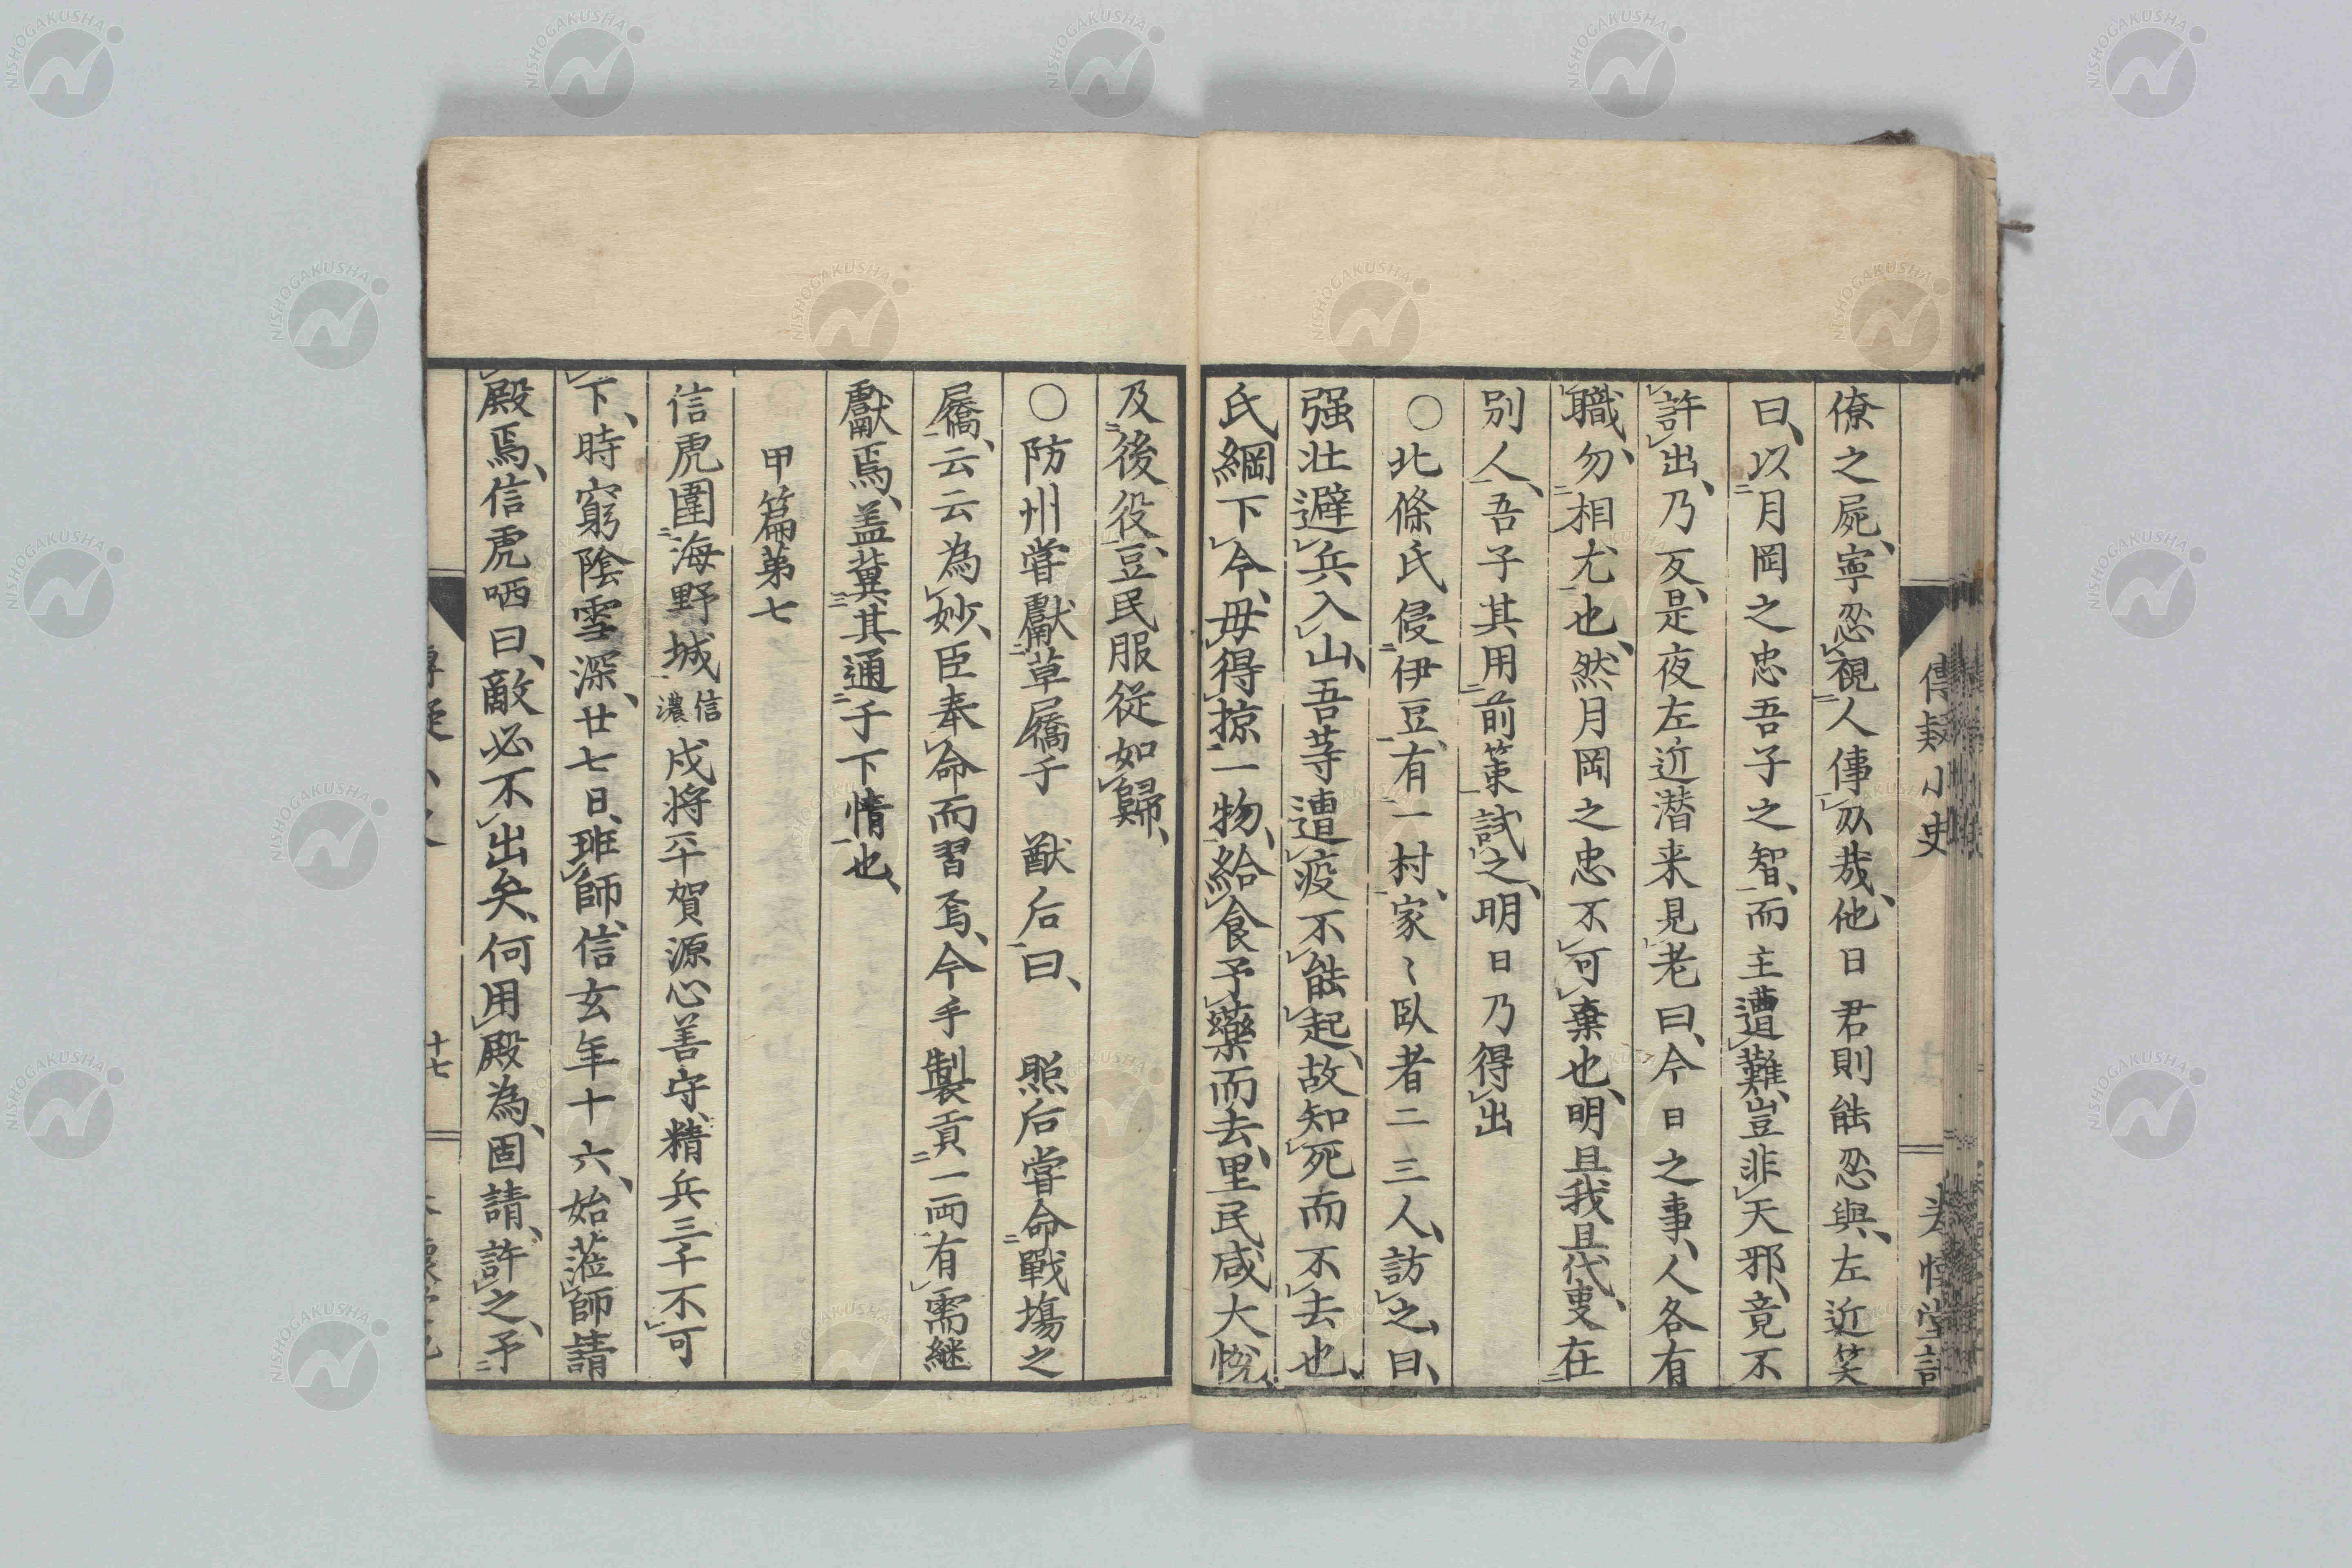 傳疑小史
僚之屍、寧忍視人倳刃哉、他日君則能忍與、左近笑
曰、以月岡之忠吾子之智、而主遭難、豈非天邪、竟不
許出、乃反、是夜左近潜来見老曰、今日之事、人各有
職、勿相尤也、然月岡之忠不可棄也、明且我且代叟、在
別人、吾子其用前策試之、明日乃得出
〇北條氏侵伊豆、有一村、家〻臥者二三人、訪之、曰、
强壮避兵入山、吾等遭疫不能起、故知死而不去也、
氏綱下令、毋得掠一物、給食予藥而去、里民咸大悦、
及後役、豆民服従如歸、
〇防州嘗獻草屩于 猷后曰、 照后嘗命戰塲之
屩、云云為妙、臣奉命而習焉、今手製貢一両有需継
獻焉、盖冀其通于下情也、
甲篇第七
信虎圍海野城信濃戍将平賀源心善守、精兵三千不可
下、時窮陰雪深、廿七日、班師、信玄年十六、始蒞師請
殿焉、信虎哂曰、敵必不出矣、何用殿為、固請、許之、予
十七